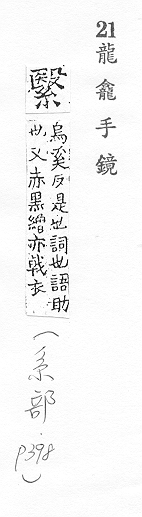 21 龍龕手鏡
繄
烏奚反是也詞也語助
也又赤黑繒亦戟衣
(系部 p398)